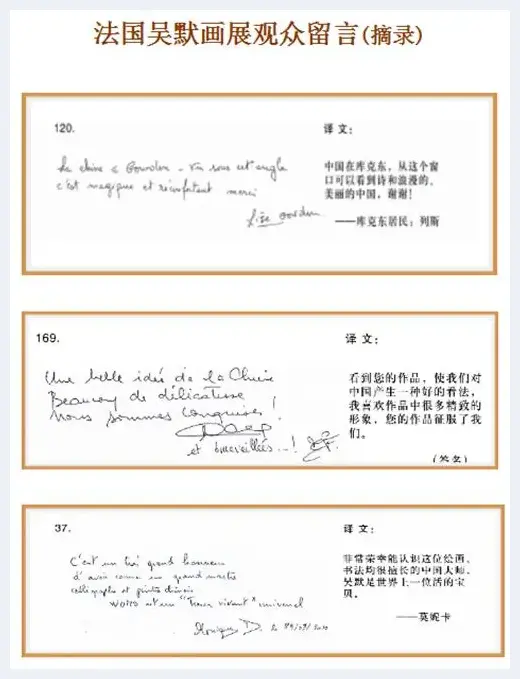 法国吴默画展观众留言(摘录)
120.
译文:
La chine à Gourdon - Vu sous cet angle
c'est magique et réconfortant merci
中国在库克东，从这个窗
口可以看到诗和浪漫的、
美丽的中国，谢谢!
——库克东居民：列斯
169.
译文:
Une belle idée de la Chine
Beaucoup de délicatesse
Nous sommes conquises!
et émerveillées...!
看到您的作品，使我们对
中国产生一种好的看法，
我喜欢作品中很多精致的
形象，您的作品征服了我
们。
(签名)
37.
译文:
C'est un très grand honneur
d'avoir connu un grand maître
calligraphe et peintre chinois
WOMO est un "Trésor vivant" universel
Monique D.
非常荣幸能认识这位绘画、
书法均很擅长的中国大师。
吴默是世界上一位活的宝
贝。
——莫妮卡